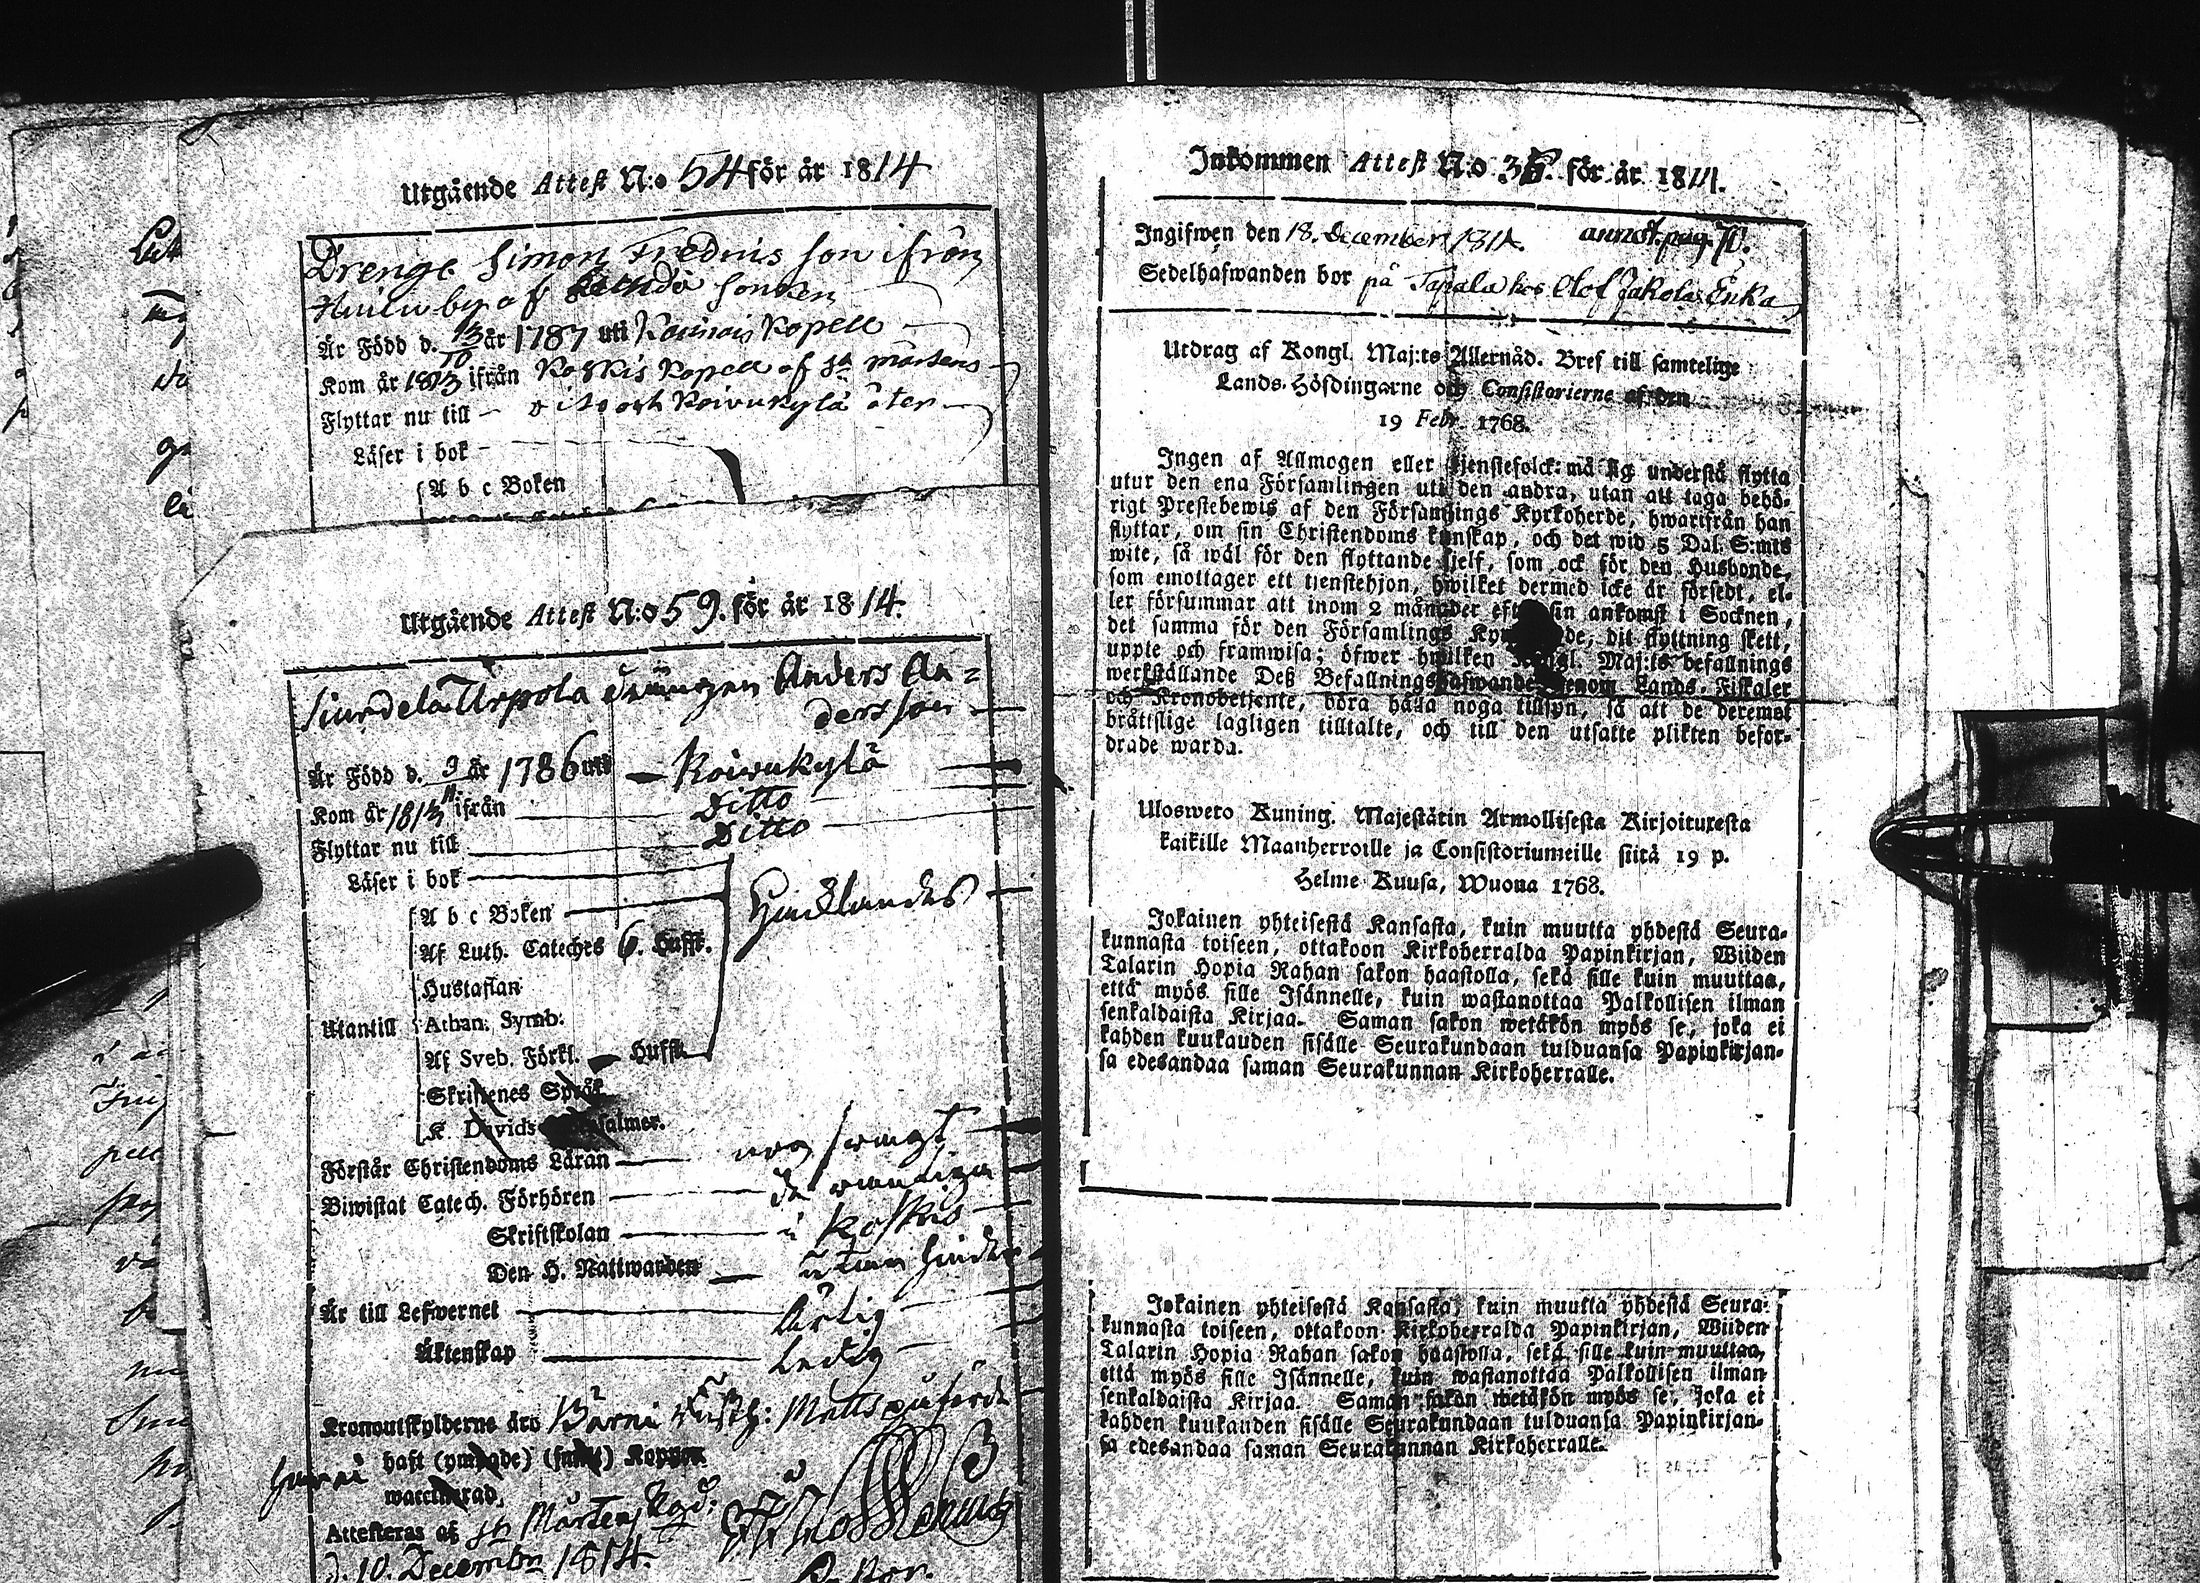 Utgående Attest N:o 54 för år 1814
Drenge Simon Fredrics son ifrån
by af
Är Född d. 13/10 år 1787 uti Kapell
Kom år 1813 ifrån Koskis Kapell af St Mårtens
Flyttar nu till Koivukylä åter
Läser i bok
A b c Boken
Utgående Attest N:o 59. för år 1814.
Urpola Anders An=
dersson
Är Född d. 9 år 1786 uti Koivukylä
Kom år 1813 ifrån Ditto
Flyttar nu till Ditto
Läser i bok
A b c Boken
Af Luth. Cateches 6. Hufst.
Hustaflan
Utantill Athan. Symb.
Af Sveb. Förkl. Hufst.
Skriftenes Språk
K. Davids Psalmer.
Förstår Christendoms Läran
Biwistat Catech. Förhören
Skriftskolan i Koskis
Den H. Nattwarden utan hinder
Är till Lefwernet Ärlig
Äktenskap Ledig
Kronoutskylderne äro
haft (ymkade) (smitt) Koppor
waccinerad,
Attesteras af St Mårtens
d. 10. December 1814.
Inkommen Attest N:o för år 1814.
Ingifwen den 18. December 1814. annot. pag. 70.
Sedelhafwanden bor på Tapala hos Olof Jakola Enka
Utdrag af Kongl. Maj:ts Allernåd. Bref till samtelige
Lands-Höfdingarne och Consistorierne af den
19 Febr. 1768.
Ingen af Allmogen eller tjenstefolck må sig understå flytta
utur den ena Församlingen uti den andra, utan att taga behö-
rigt Prestebewis af den Församlings Kyrkoherde, hwarifrån han
flyttar, om sin Christendoms kunskap, och det wid 5 Dal. S:mts
wite, så wäl för den flyttande sjelf, som ock för den Husbonde,
som emottager ett tjenstehjon, hwilket dermed icke är försedt, el-
ler försummar att inom 2 månader efter sin ankomst i Socknen,
det samma för den Församlings Kyrkoherde, dit flyttning skett,
uppte och framwisa; öfwer hwilken Kongl. Maj:ts befallnings
werkställande Deß Befallningshafwande genom Lands-Fiskaler
och Kronobetjente, böra hålla noga tillsyn, så att de deremot
bråttslige lagligen tilltalte, och till den utsatte plikten befor-
drade warda.
Ulosweto Kuning. Majestätin Armollisesta Kirjoituxesta
kaikille Maanherroille ja Consistoriumeille siitä 19 p.
Helme Kuusa, Wuona 1768.
Jokainen yhteisestä Kansasta, kuin muutta yhdestä Seura-
kunnasta toiseen, ottakoon Kirkoherralda Papinkirjan, Wiiden
Talarin Hopia Rahan sakon haastolla, sekä sille kuin muuttaa,
että myös sille Isännelle, kuin wastanottaa Palkollisen ilman
senkaldaista Kirjaa. Saman sakon wetäkön myös se, joka ei
kahden kuukauden sisälle Seurakundaan tulduansa Papinkirjan-
sa edesandaa saman Seurakunnan Kirkoherralle.
Jokainen yhteisestä Kansasta, kuin muutta yhdestä Seura-
kunnasta toiseen, ottakoon Kirkoherralda Papinkirjan, Wiiden
Talarin Hopia Rahan sakon haastolla, sekä sille kuin muuttaa,
että myös sille Isännelle, kuin wastanottaa Palkollisen ilman
senkaldaista Kirjaa. Saman sakon wetäkön myös se, joka ei
kahden kuukauden sisälle Seurakundaan tulduansa Papinkirjan-
sa edesandaa saman Seurakunnan Kirkoherralle.